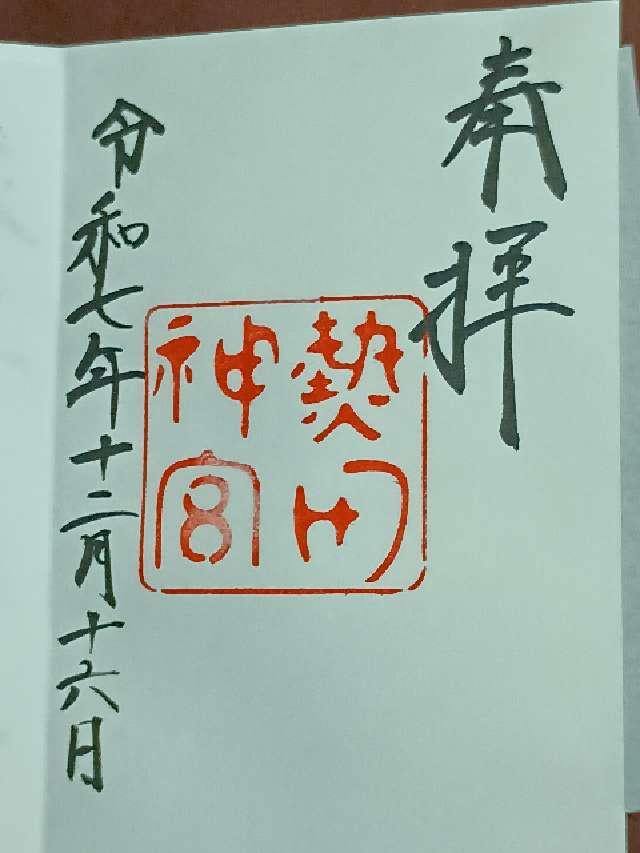 奉拝
熱田
神宮
令和七年十二月十六日